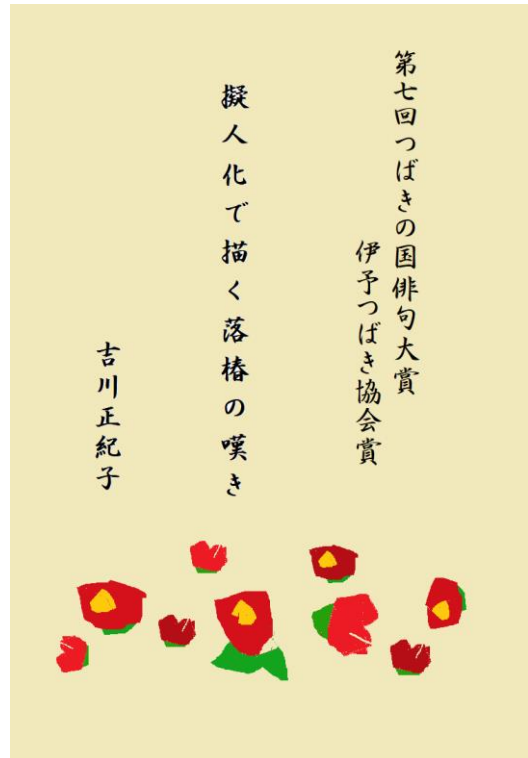 第七回つばきの国俳句大賞
伊予つばき協会賞
擬人化で描く落椿の嘆き
吉川正紀子